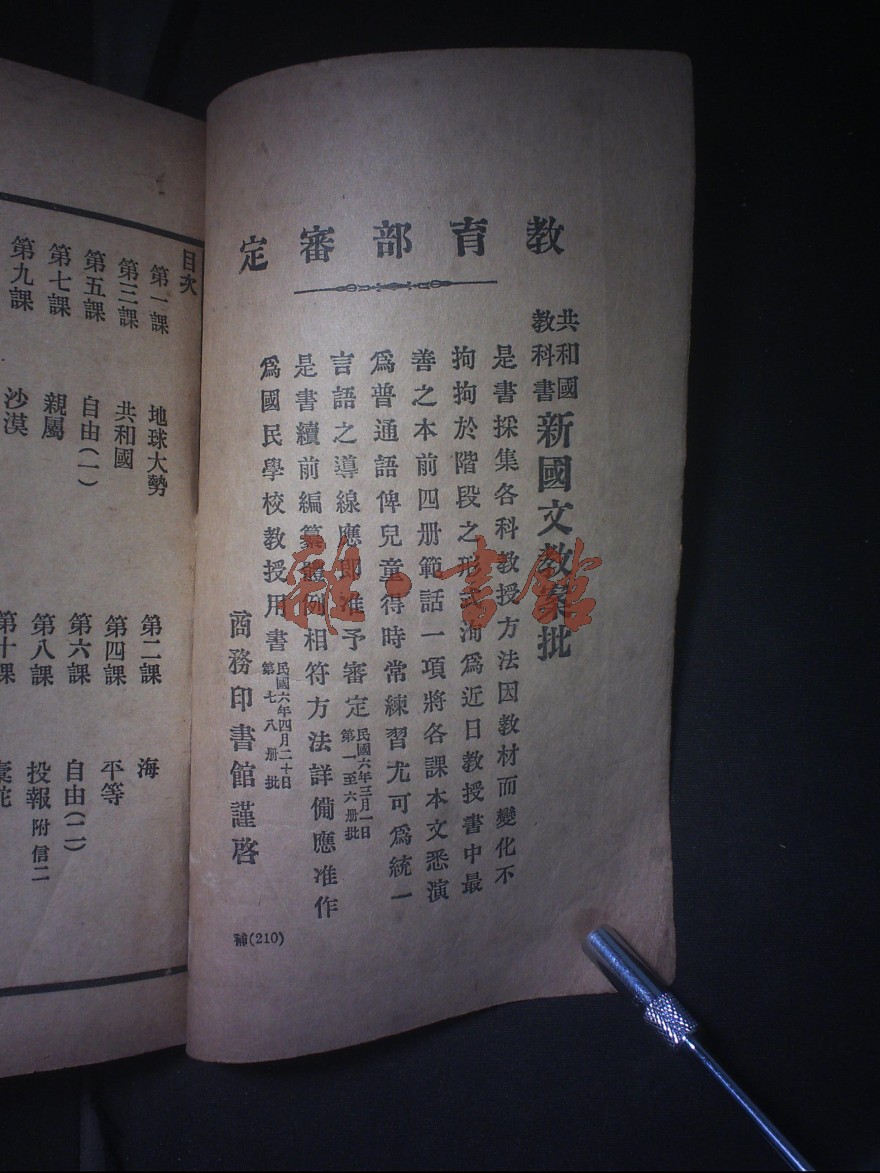 教育部審定
共和國教科書新國文教案批
是書採集各科教授方法因教材而變化不
拘拘於階段之形式洵爲近日教授書中最
善之本前四册範話一項將各課本文悉演
爲普通語俾兒童得時常練習尤可爲統一
言語之導線應即准予審定民國六年三月一日第一至六册批
是書續前編纂體例相符方法詳備應准作
爲國民學校教授用書民國六年四月二十日第七八册批
商務印書館謹啓
補(210)
目次
第一課 地球大勢 第二課 海
第三課 共和國 第四課 平等
第五課 自由(一) 第六課 自由(二)
第七課 親屬 第八課 投報附信二
第九課 沙漠 第十課 橐佗
雜·書館